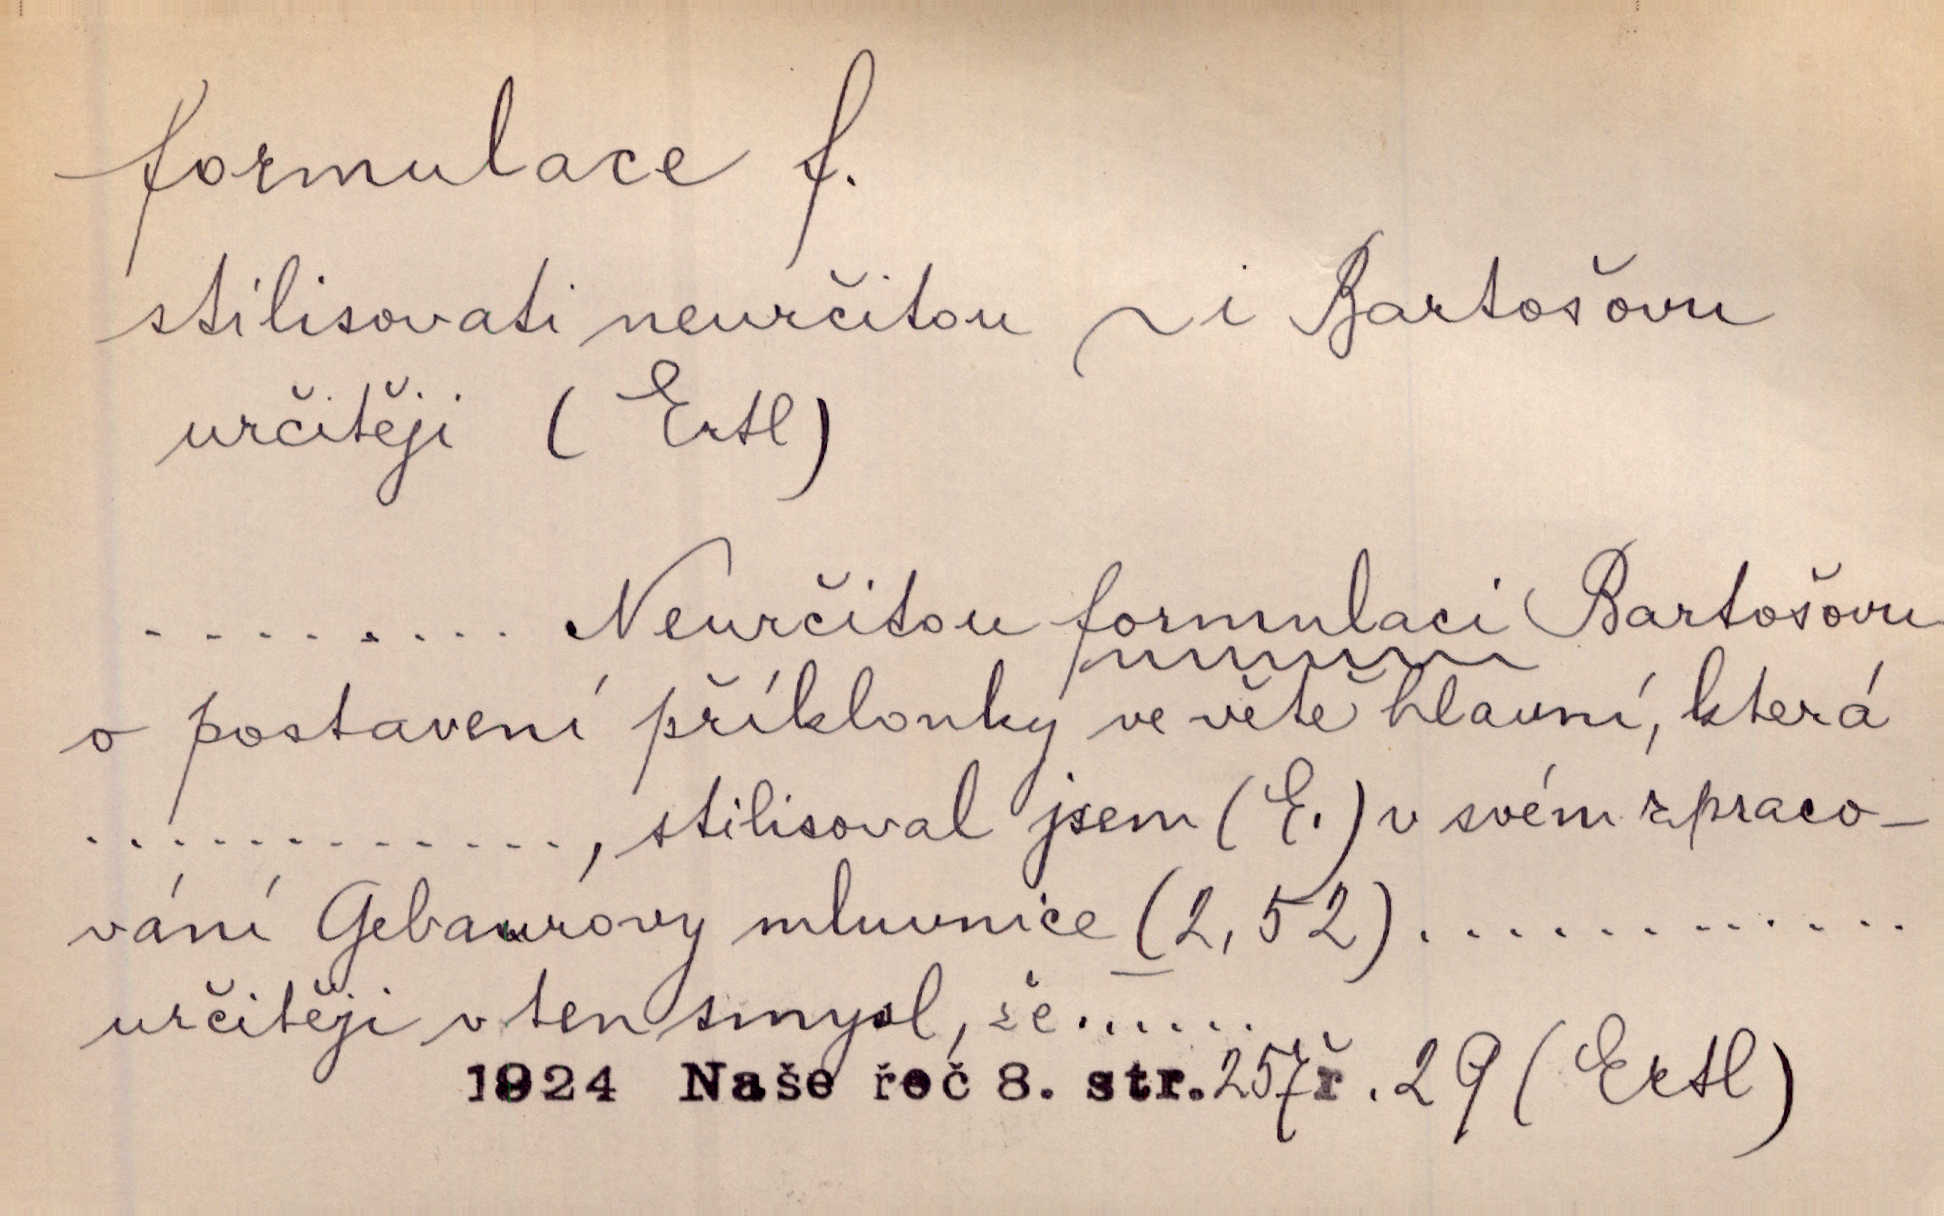 formulace f.
stilisovati neurčitou ~ i Bartošovu
určitěji (Ertl)
......... Neurčitou formulaci Bartošovu
o postavení příklonky ve větě hlavní, která
............., stilisoval jsem (E.) v svém zpraco-
vání Gebaurovy mluvnice (2,52).............
určitěji v ten smysl, že......
1924 Naše řeč 8. str. 257 ř. 29 (Ertl)